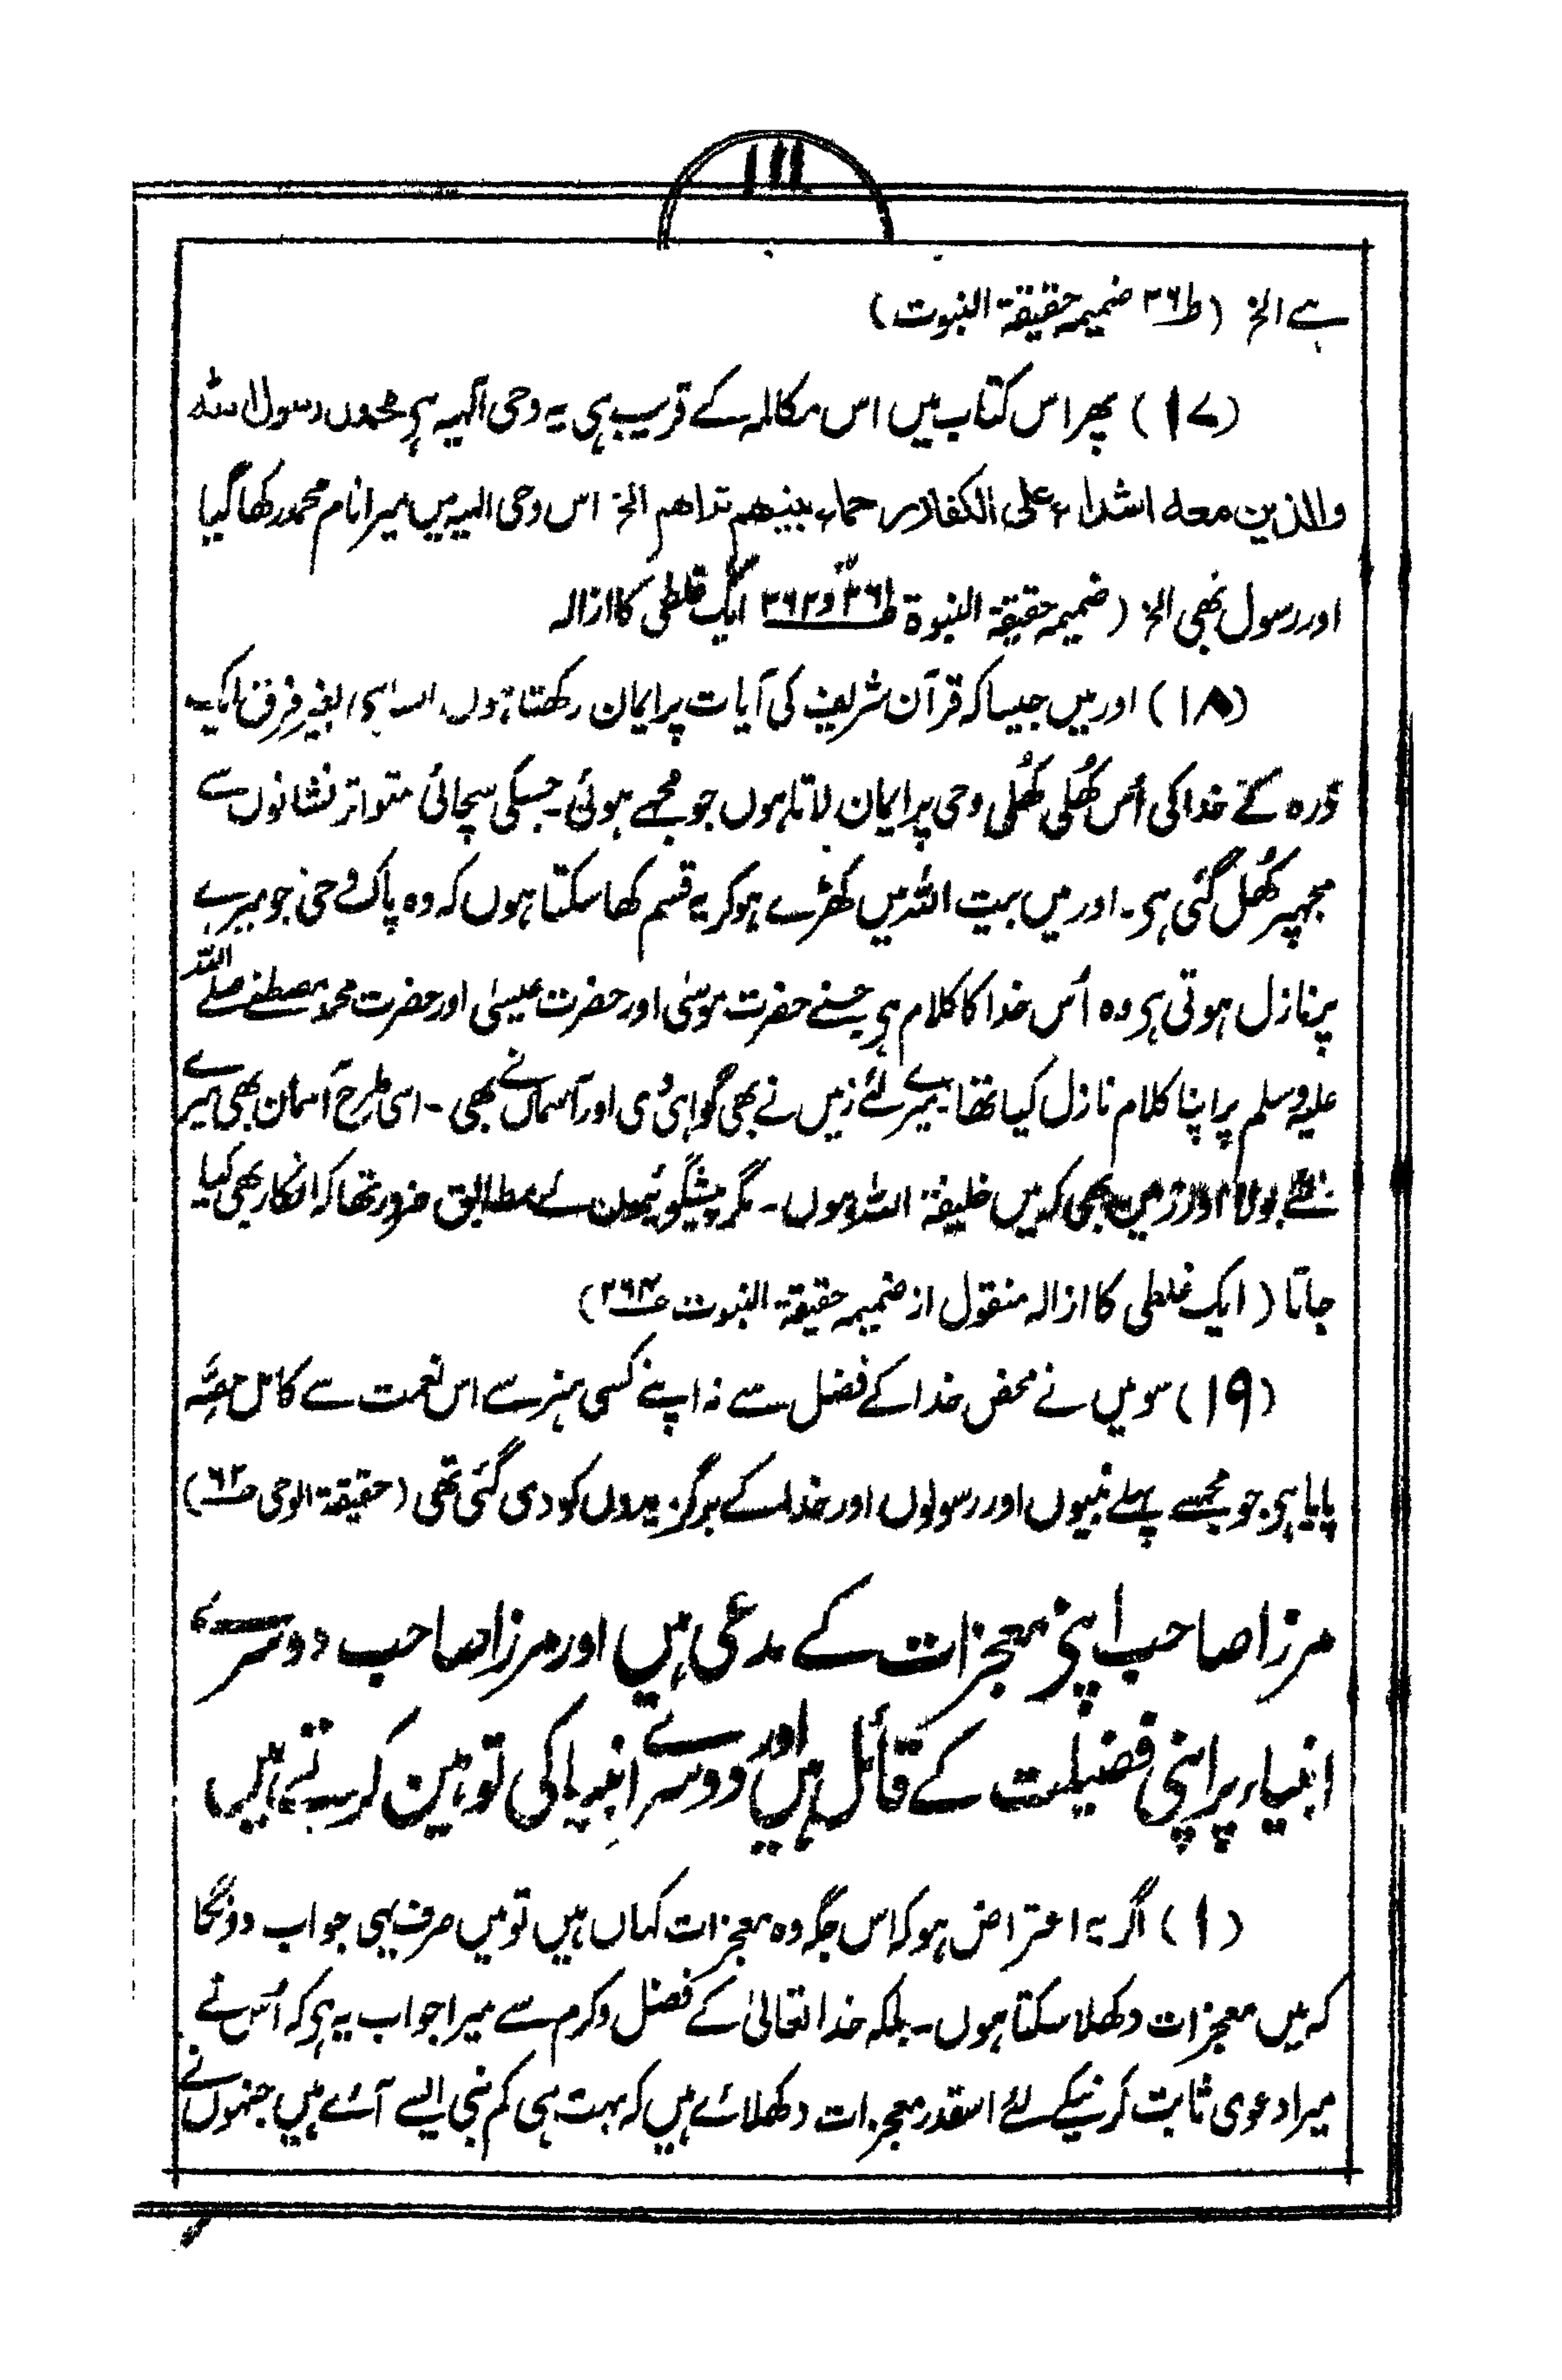 ۱۱۱
ہے الخ (ص۲۶۱ ضمیمہ حقیقۃ النبوت)
(۱۷) پھر اس کتاب میں اس مکالمہ کے قریب ہی یہ وحی الٰہیہ ہی محمد رسول اللہ
والذین معہ اشداء علی الکفار رحماء بینھم تراھم الخ اس وحی الٰہیہ میں میرا نام محمد رکھا گیا
اور رسول بھی الخ (ضمیمہ حقیقۃ النبوۃ ص۲۶۱ و ۲۶۲ ایک غلطی کا ازالہ
(۱۸) اور میں جیسا کہ قرآن شریف کی آیات پر ایمان رکھتا ہوں ایسا ہی بغیر فرق ایک
ذرہ کے خدا کی اُس کھُلی کھُلی وحی پر ایمان لاتا ہوں جو مجھے ہوئی۔ جسکی سچائی متواتر نشانوں سے
مجھپر کھُل گئی ہی۔ اور میں بیت اللہ میں کھڑے ہو کر یہ قسم کھا سکتا ہوں کہ وہ پاک وحی جو میرے
پر نازل ہوتی ہی وہ اُس خدا کا کلام ہی جسنے حضرت موسیٰ اور حضرت عیسیٰ اور حضرت محمد مصطفےٰ صلے اللہ
علیہ وسلم پر اپنا کلام نازل کیا تھا۔ میرے لئے زمیں نے بھی گواہی دی اور آسماں نے بھی۔ اسی طرح آسمان بھی میرے
لئے بولا اور زمین بھی کہ میں خلیفۃ اللہ ہوں۔ مگر پیشگوئیوں کے مطابق ضرور تھا کہ انکار بھی کیا
جاتا (ایک غلطی کا ازالہ منقول از ضمیمہ حقیقۃ النبوت ص۲۶۴)
(۱۹) سو میں نے محض خدا کے فضل سے نہ اپنے کسی ہنر سے اس نعمت سے کامل حصّہ
پایا ہی جو مجھسے پہلے نبیوں اور رسولوں اور خدا کے برگزیدوں کو دی گئی تھی (حقیقۃ الوحی ص۶۲)
مرزا صاحب اپنی معجزات کے مدعی ہیں اور مرزا صاحب دوسرے
انبیاء پر اپنی فضیلت کے قائل ہیں اور دوسرے انبیا کی توہین کرتے ہیں
(۱) اگر یہ اعتراض ہو کہ اس جگہ وہ معجزات کہاں ہیں تو میں صرف یہی جواب دونگا
کہ میں معجزات دکھلا سکتا ہوں۔ بلکہ خدا تعالیٰ کے فضل و کرم سے میرا جواب یہ ہی کہ اُس نے
میرا دعوی ثابت کرنیکے لئے اسقدر معجزات دکھلائے ہیں کہ بہت ہی کم نبی ایسے آئے ہیں جنہوں نے